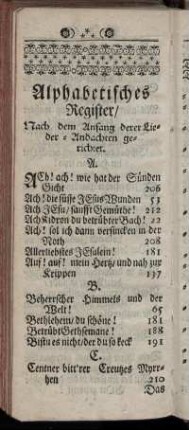 Alphabetisches
Register/
Nach dem Anfang derer Lie-
der-Andachten ge-
richtet.
A.
ACh! ach! wie hat der Sünden
Gicht 206
Ach! die süsse JEsus Wunden 53
Ach JEsu/ saufft Gemüthe! 212
Ach Kidron du betrübter Bach! 22
Ach! sol ich dann versincken in der
Noth 208
Allerliebstes JEsulein! 181
Auf! auf! mein Hertz/ und nah zur
Krippen 137
B.
Beherrscher Himmels und der
Welt! 65
Bethlehem/ du schöne! 181
Betrübt Gethsemane! 188
Bistu es nicht/ der du so keck 191
C.
Centner bitt'rer Creutzes Myrr-
hen 210
Das